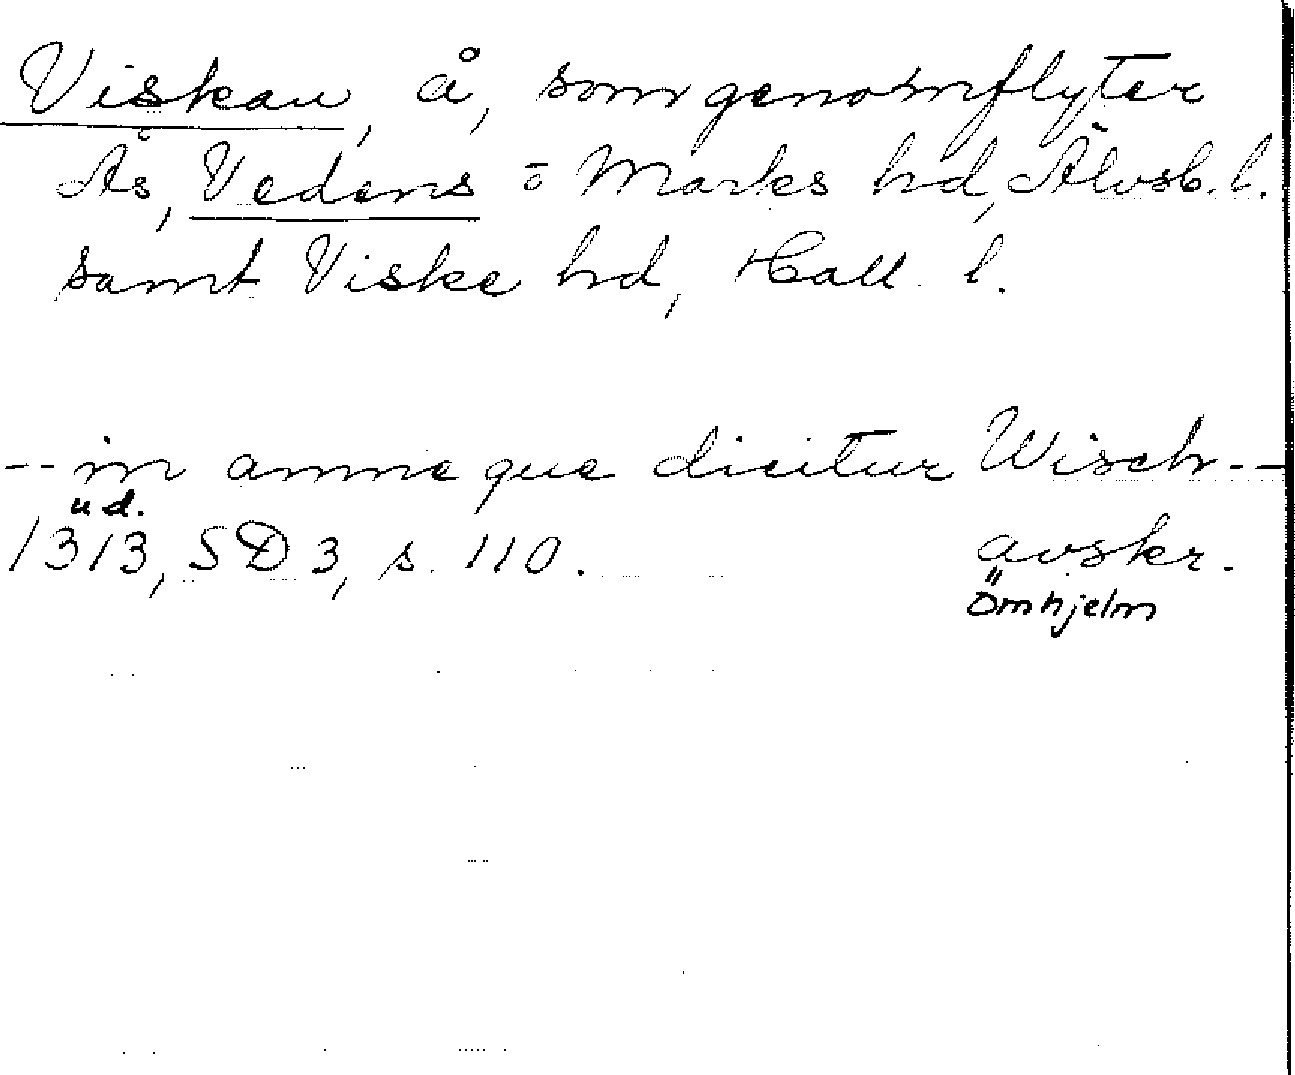 Viskan, å, som genomflyter
Ås, Vedens o Marks hd, Älvsb. l.
samt Viske hd, Hall. l.
-- in amne que dicitur Wisch --
u d.
1313, SD 3, s. 110. avskr.
Örnhjelm